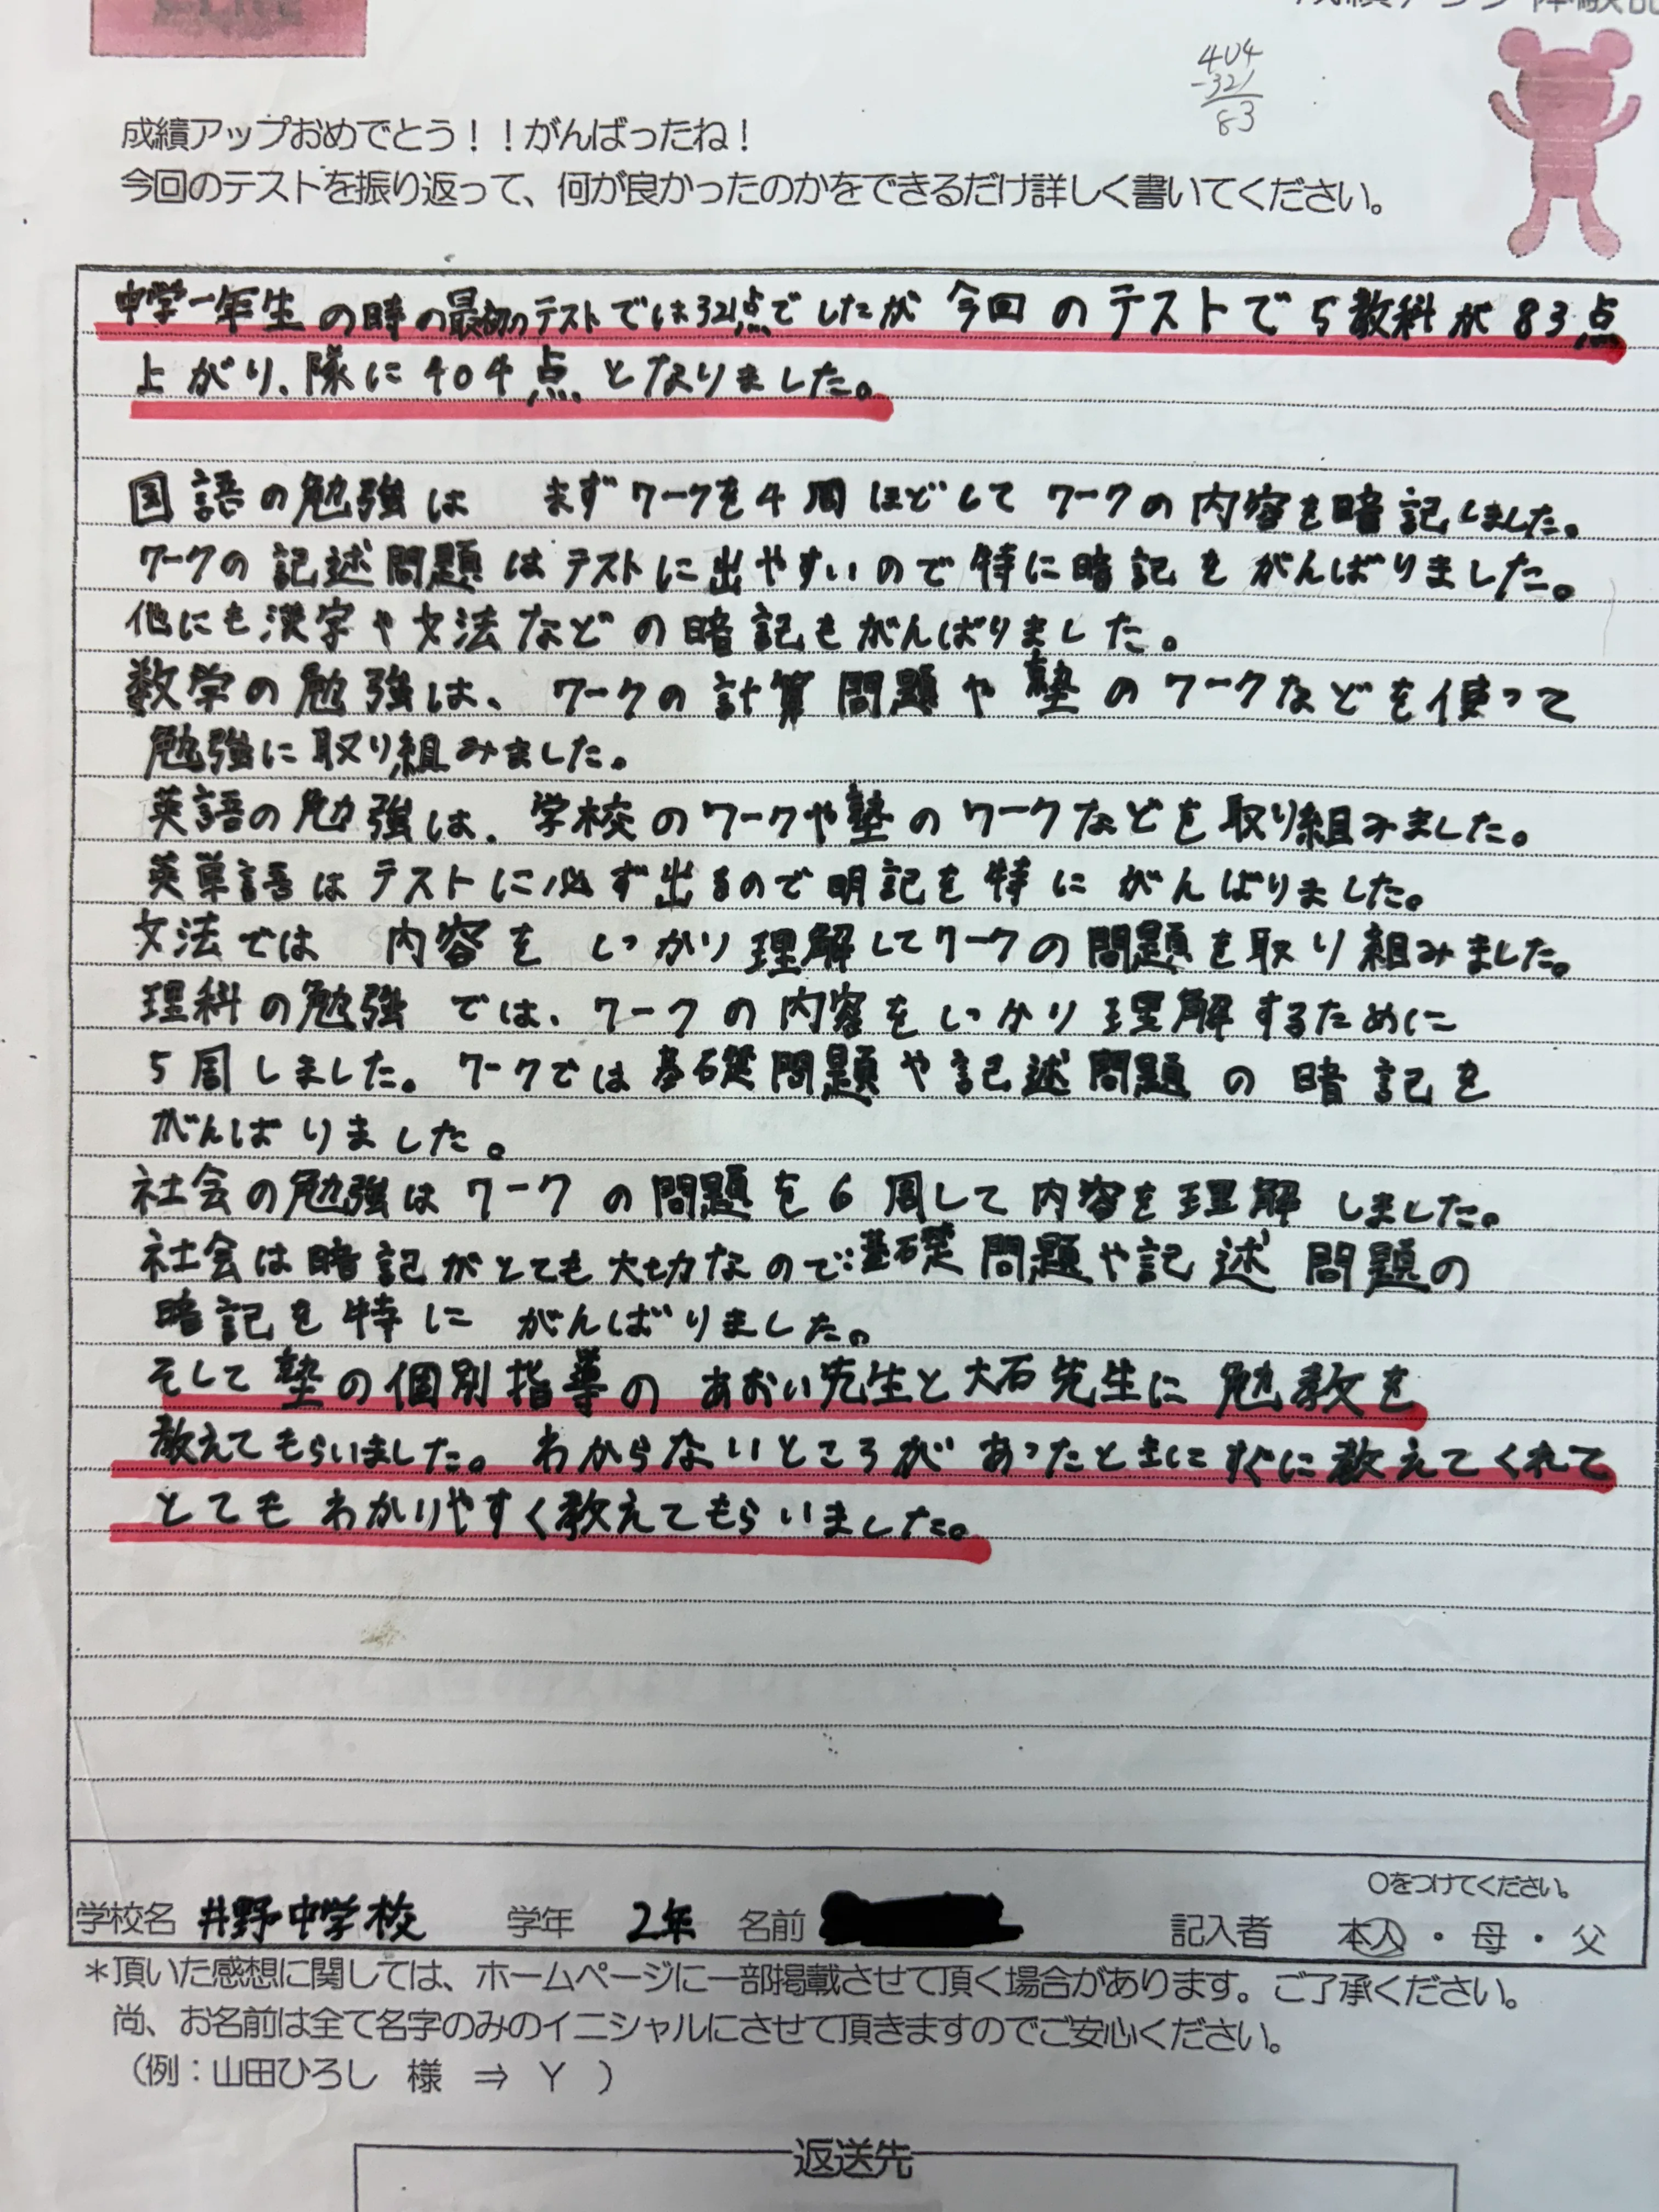 成績アップ体験記
404
-321
83
成績アップおめでとう！！がんばったね！
今回のテストを振り返って、何が良かったのかをできるだけ詳しく書いてください。
中学一年生の時の最初のテストでは321点でしたが今回のテストで5教科が83点
上がり、隊に404点となりました。
国語の勉強は まずワークを4周ほどしてワークの内容を暗記しました。
ワークの記述問題はテストに出やすいので特に暗記をがんばりました。
他にも漢字や文法などの暗記もがんばりました。
数学の勉強は、ワークの計算問題や塾のワークなどを使って
勉強に取り組みました。
英語の勉強は、学校のワークや塾のワークなどを取り組みました。
英単語はテストに必ず出るので明記を特にがんばりました。
文法では 内容をしっかり理解してワークの問題を取り組みました。
理科の勉強では、ワークの内容をしっかり理解するために
5周しました。ワークでは基礎問題や記述問題の暗記を
がんばりました。
社会の勉強はワークの問題を6周して内容を理解しました。
社会は暗記がとても大切なので基礎問題や記述問題の
暗記を特にがんばりました。
そして塾の個別指導のあおい先生と大石先生に勉教を
教えてもらいました。わからないところがあったときにすぐに教えてくれて
とてもわかりやすく教えてもらいました。
〇をつけてください。
学校名 井野中学校 学年 2年 名前 記入者 本人・母・父
＊頂いた感想に関しては、ホームページに一部掲載させて頂く場合があります。ご了承ください。
尚、お名前は全て名字のみのイニシャルにさせて頂きますのでご安心ください。
（例：山田ひろし 様 ⇒ Y ）
返送先